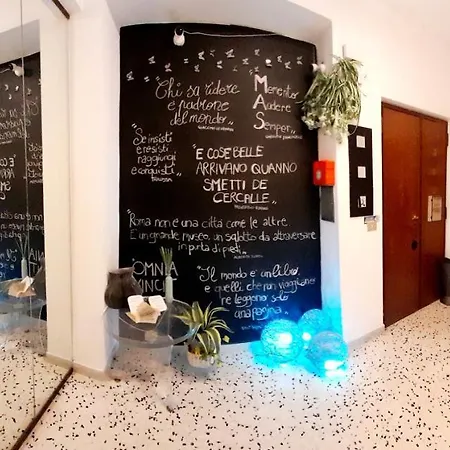 Chi sa ridere
è padrone
del mondo
GIACOMO LEOPARDI
Memento
Audere
Semper
Se insisti
e resisti
raggiungi
e conquisti
E COSE BELLE
ARRIVANO QUANNO
SMETTI DE
CERCALLE
Roma non è una città come le altre.
È un grande museo, un salotto da attraversare
in punta di piedi
OMNIA
Il mondo è un libro
e quelli che non viaggiano
ne leggono solo
una pagina